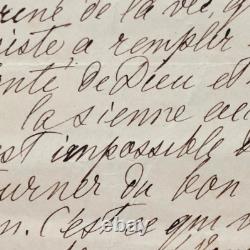 de la vie, q
iste a remplir
onté de Dieu et
la sienne au
est impossible d
urner du bon
n. C'est ce qui n